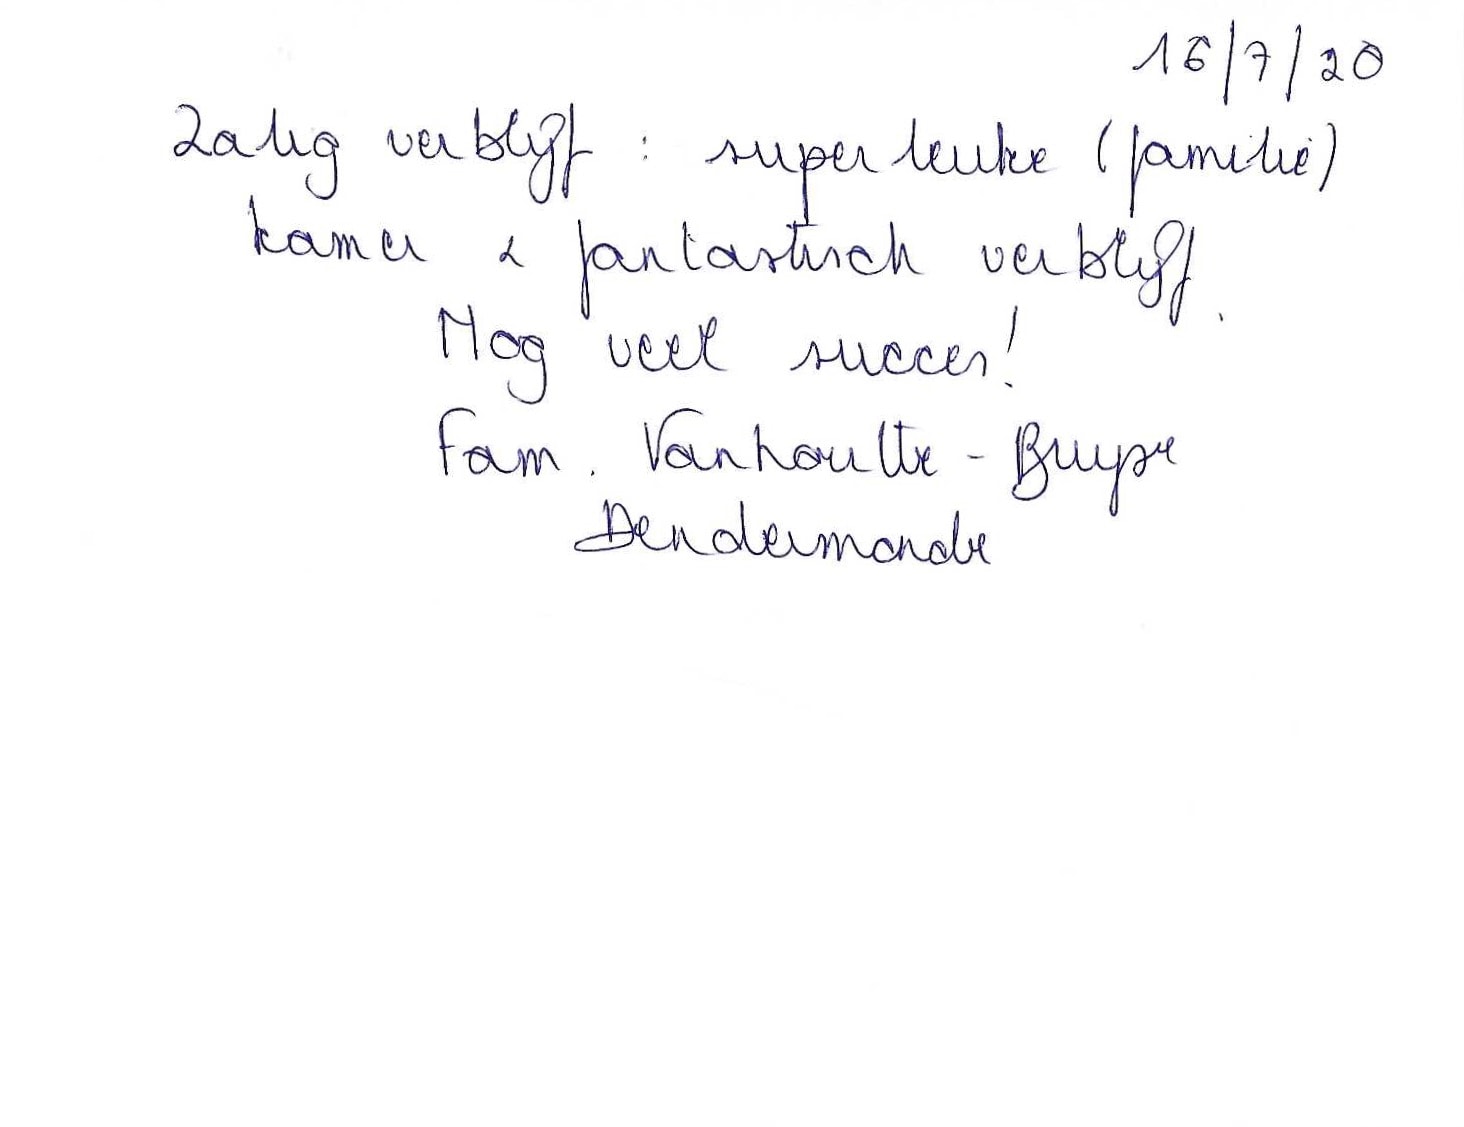 16/7/20
Zalig verblijf : super leuke (familie)
kamer & fantastisch verblijf.
Nog veel succes!
Fam. Vanhoutte - Buyse
Dendermonde